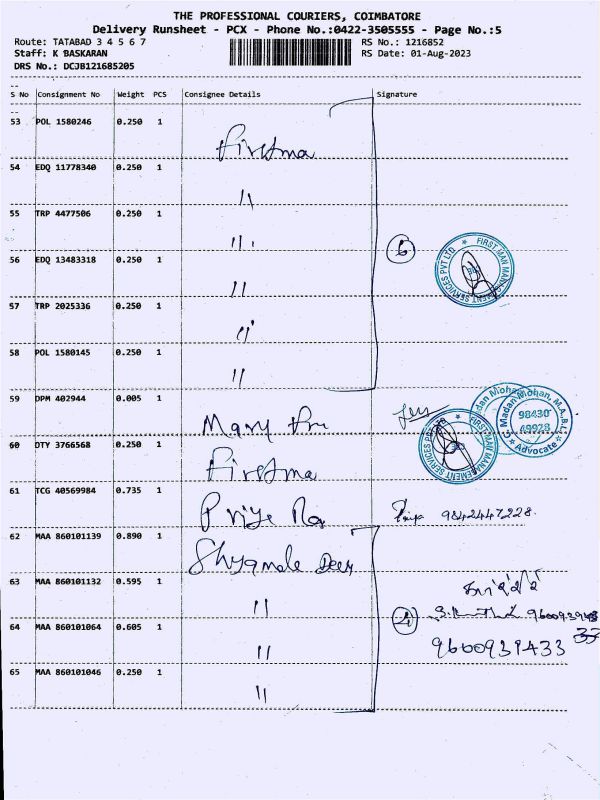 THE PROFESSIONAL COURIERS, COIMBATORE
Delivery Runsheet - PCX - Phone No.:0422-3505555 - Page No.:5
Route: TATABAD 3 4 5 6 7 RS No.: 1216852
Staff: K BASKARAN RS Date: 01-Aug-2023
DRS No.: DCJB121685205
S No Consignment No Weight PCS Consignee Details Signature
53 POL 1580246 0.250 1 Firstma
54 EDQ 11778340 0.250 1 "
55 TRP 4477506 0.250 1 "
56 EDQ 13483318 0.250 1 " 6 FIRST MAN MANAGEMENT SERVICES PVT LTD
57 TRP 2025336 0.250 1 "
58 POL 1580145 0.250 1 "
59 DPM 402944 0.005 1 Mary C. Madan Mohan, M.A.,B.L. 98430 49928 Advocate
60 DTY 3766568 0.250 1 Firstma FIRST MAN MANAGEMENT SERVICES PVT LTD
61 TCG 40569984 0.735 1 Priya Ra Priya 9842447228
62 MAA 860101139 0.890 1 Shyamale Deey
63 MAA 860101132 0.595 1 "
64 MAA 860101064 0.605 1 " 4 9600939433
65 MAA 860101046 0.250 1 "